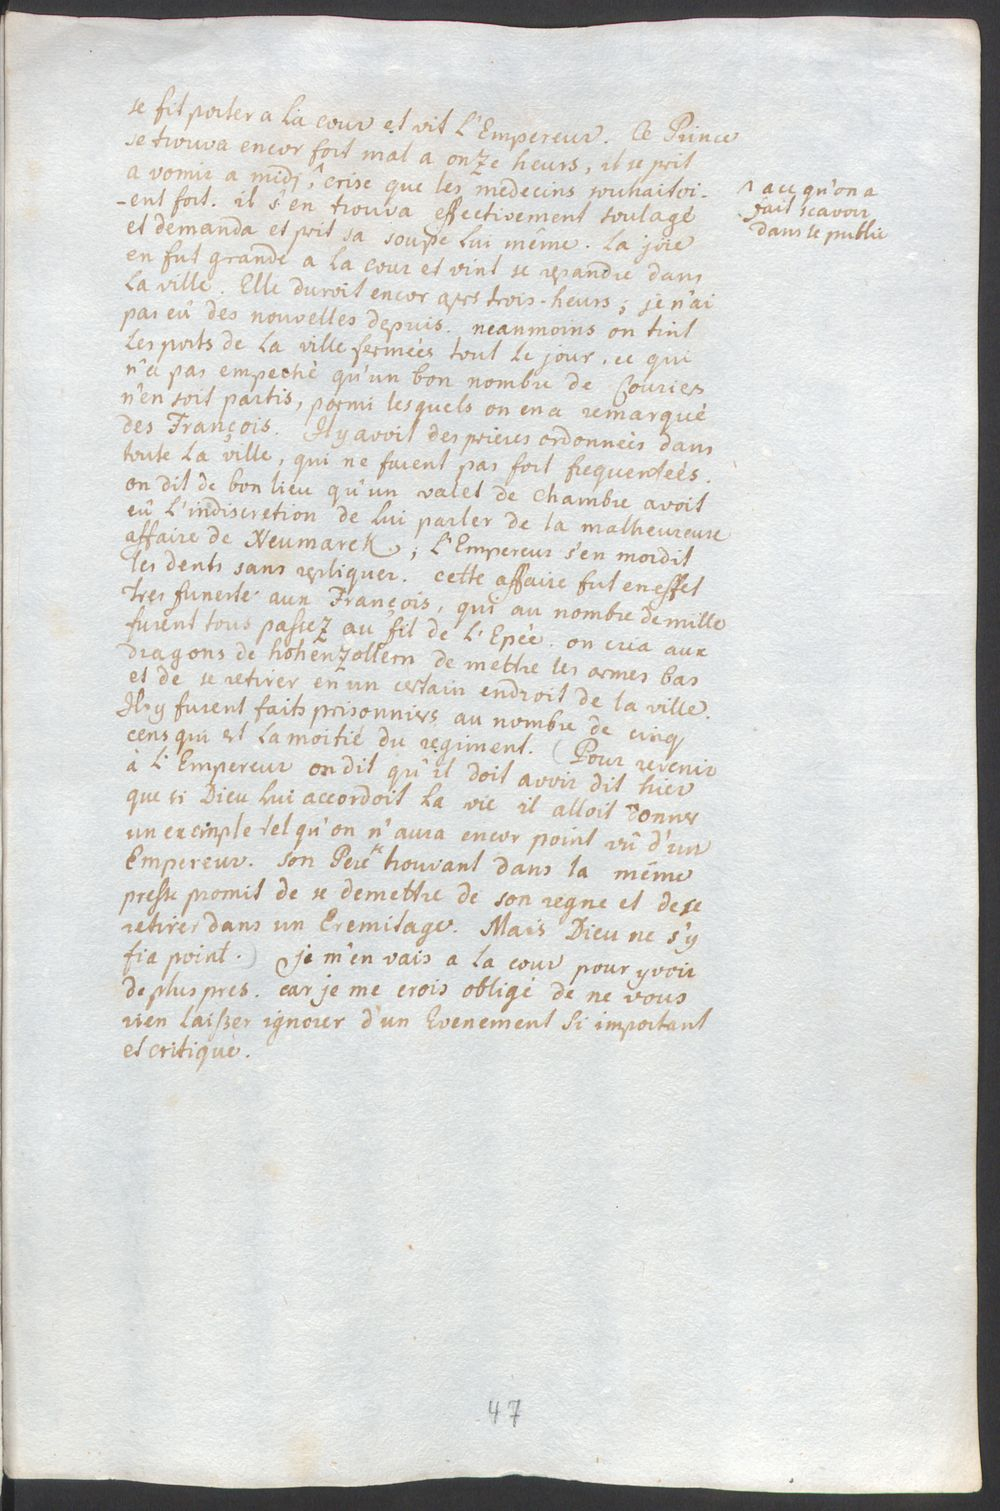 se fit porter a la cour et vit L'Empereur. Ce Prince
se trouva encor fort mal a onze heurs, il se prit
a vomir a midi, crise que les medecins souhaitoi-
-ent fort. il s'en trouva effectivement soulagé
et demanda et prit sa soupe lui même. la joie
en fut grande a la cour et vint se repandre dans
la ville. Elle duroit encor apres trois-heurs; je n'ai
pas eû des nouvelles depuis. neanmoins on tint
les ports de la ville fermées tout le jour, ce qui
n'a pas empeché qu'un bon nombre de Couriers
n'en soit partis, parmi lesquels on en a remarqué
des François. Il y avoit des prieres ordonneés dans
toute la ville, qui ne furent pas fort frequenteés.
on dit de bon lieu qu'un valet de chambre avoit
eû l'indiscretion de lui parler de la malheureuse
affaire de Neumarck; L'Empereur s'en mordit
les dents sans repliquer. cette affaire fut en effet
tres funeste aux François, qui au nombre de mille
furent tous passez au fil de L'Epée. on cria aux
dragons de hohenzollern de mettre les armes bas
et de se retirer en un certain endroit de la ville.
Ils y furent faits prisonniers au nombre de cinq
cens qui est la moitié du regiment. (Pour revenir
à L'Empereur on dit qu'il doit avoir dit hier
que si Dieu lui accordoit la vie il alloit donner
un exemple tel qu'on n'aura encor point vû d'un
Empereur. son Pere se trouvant dans la même
presse promit de se demettre de son regne et de se
retirer dans un Eremitage. Mais Dieu ne s'y
fia point.) je m'en vais a la cour pour y voir
de plus pres. car je me crois obligé de ne vous
rien laisser ignorer d'un Evenement si important
et critique.
a ce qu'on a
fait scavoir
dans le public
47